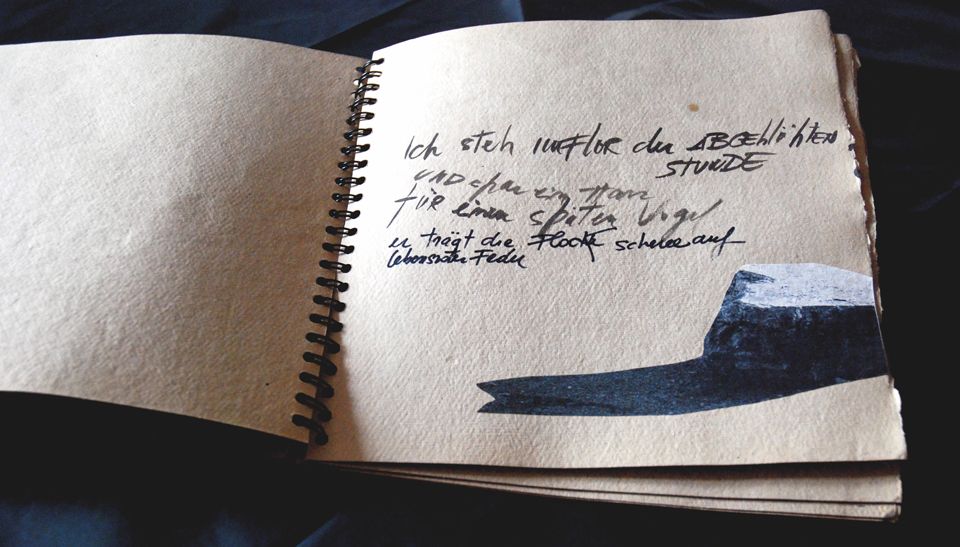 Ich steh IM FLOR der ABGEblühten
STUNDE
UND spar ein Harz
FÜR einen späten Vogel
er trägt die Flocke schnee auf
lebensroter Feder